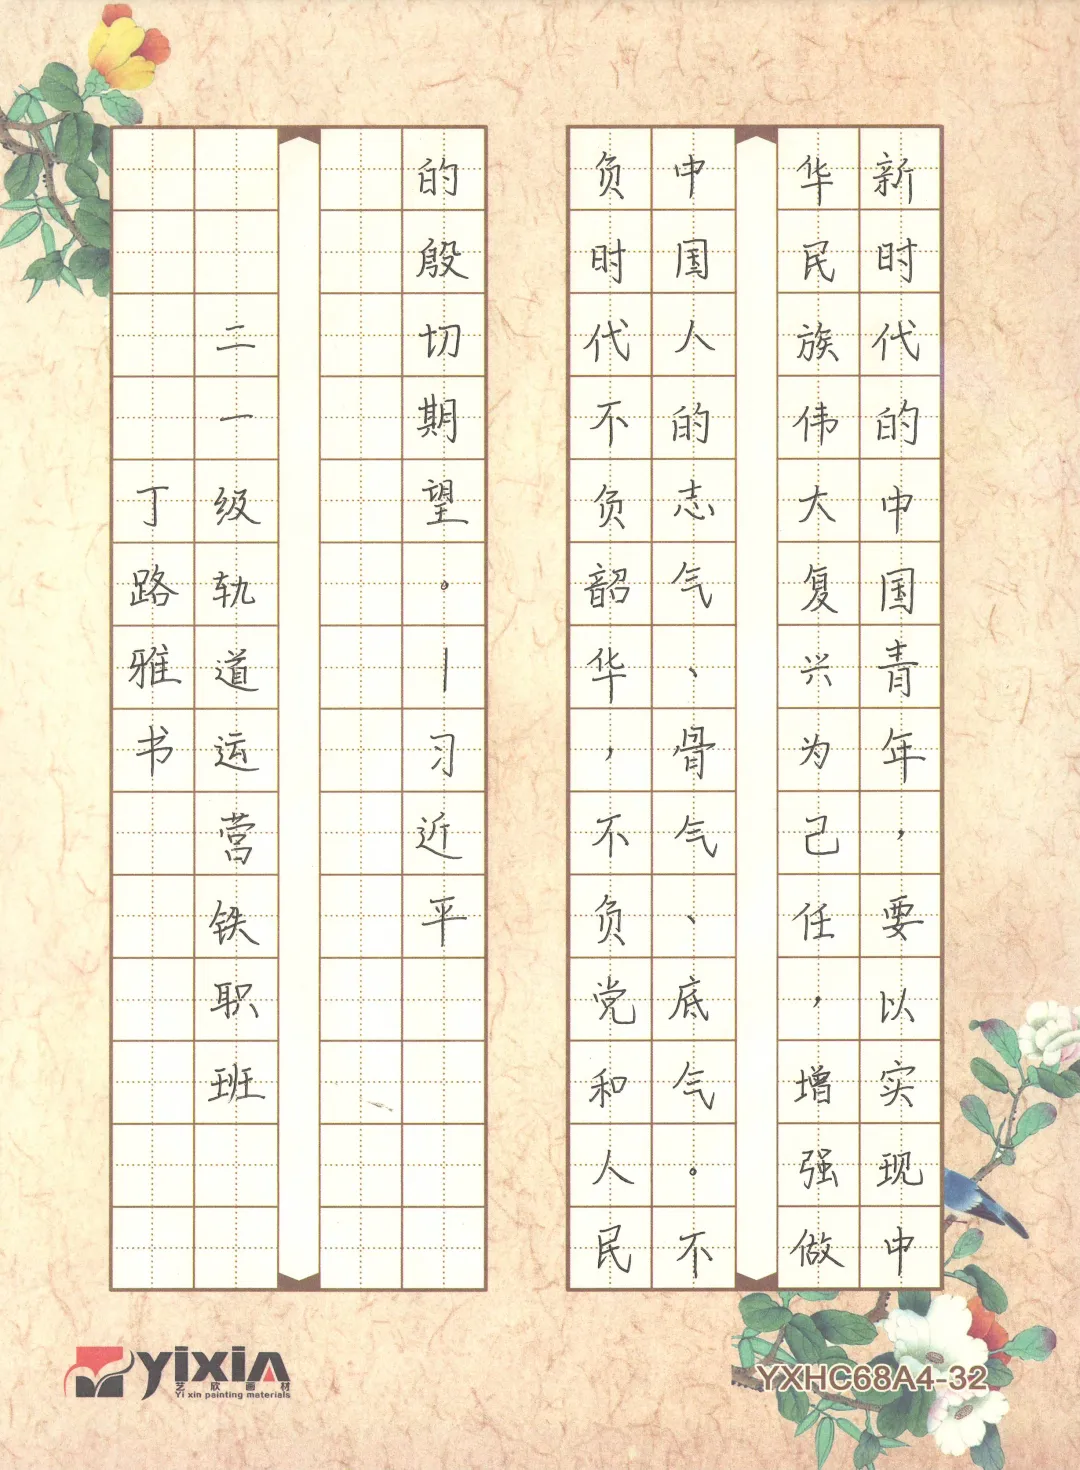 新时代的中国青年，要以实现中
华民族伟大复兴为己任，增强做
中国人的志气、骨气、底气。不
负时代不负韶华，不负党和人民
的殷切期望。—习近平
二一级轨道运营铁职班
丁路雅书
yixin
艺欣画材
Yi xin painting materials
YXHC68A4-32